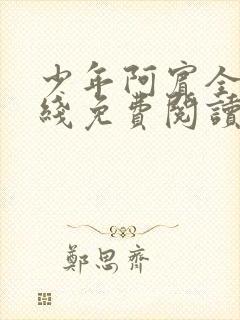 少年阿賓全
綫免費閱讀
鄭思齊